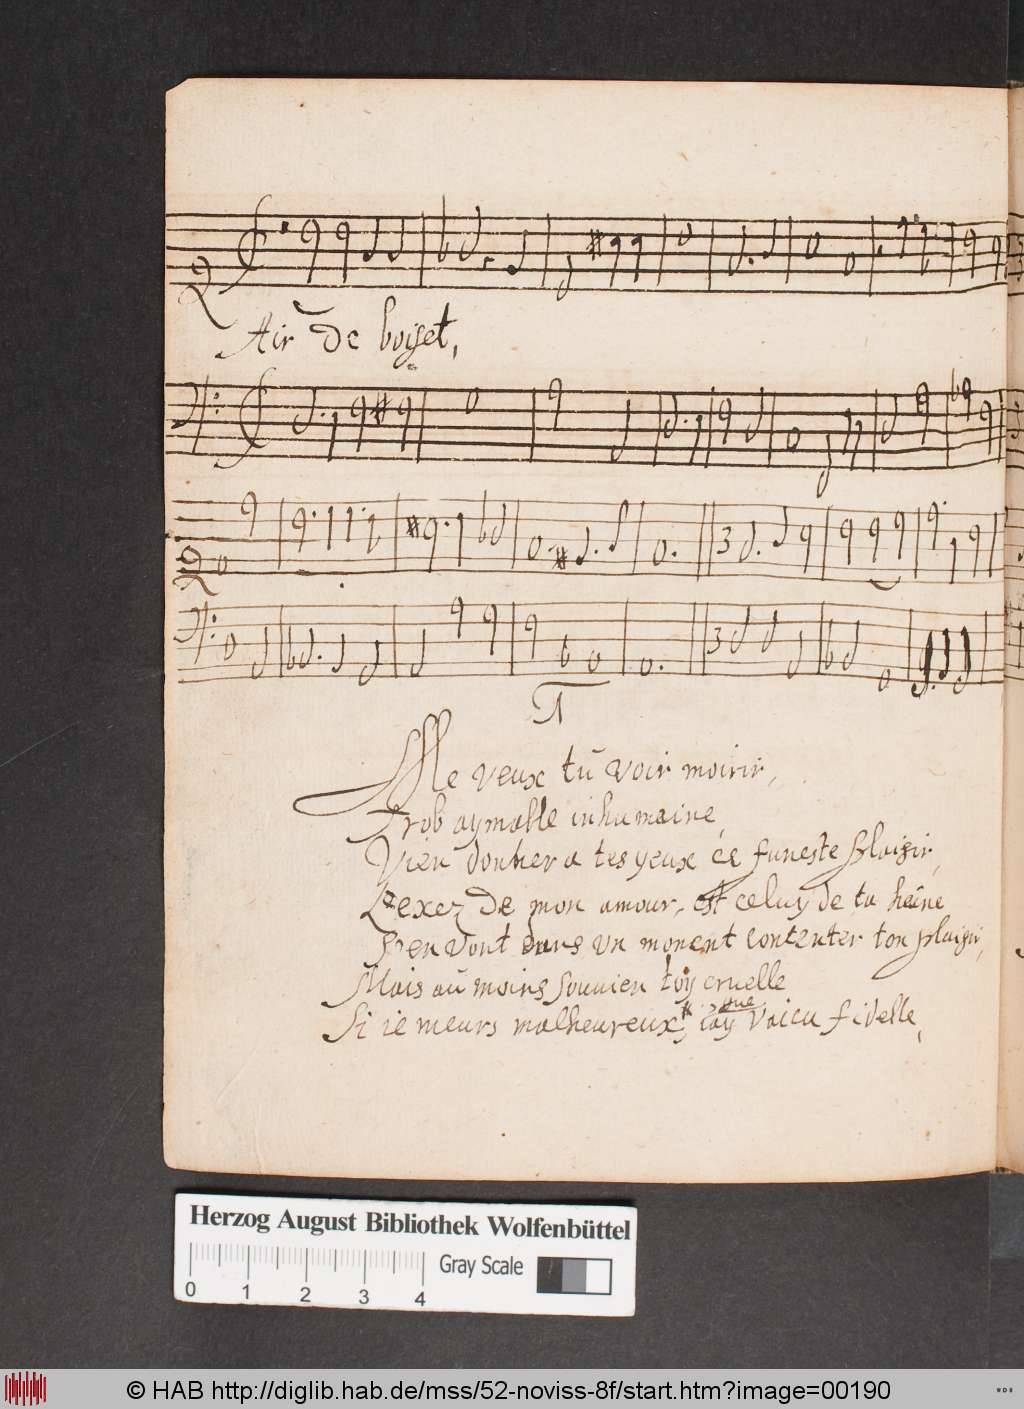 Air De boiset,
Me veux tū voir moirir,
Trob aymable inhumaine,
Vien donner a tes yeux ce funeste plaisir,
L'exez De mon amour, est celuy de ta heine
Sen vont dans un moment contenter ton plaisir,
Mais aū moins souvien toy cruelle
Si ie meurs malheureux,
que
iay Vaicu fidelle,
Herzog August Bibliothek Wolfenbüttel
Gray Scale
0 1 2 3 4
© HAB http://diglib.hab.de/mss/52-noviss-8f/start.htm?image=00190